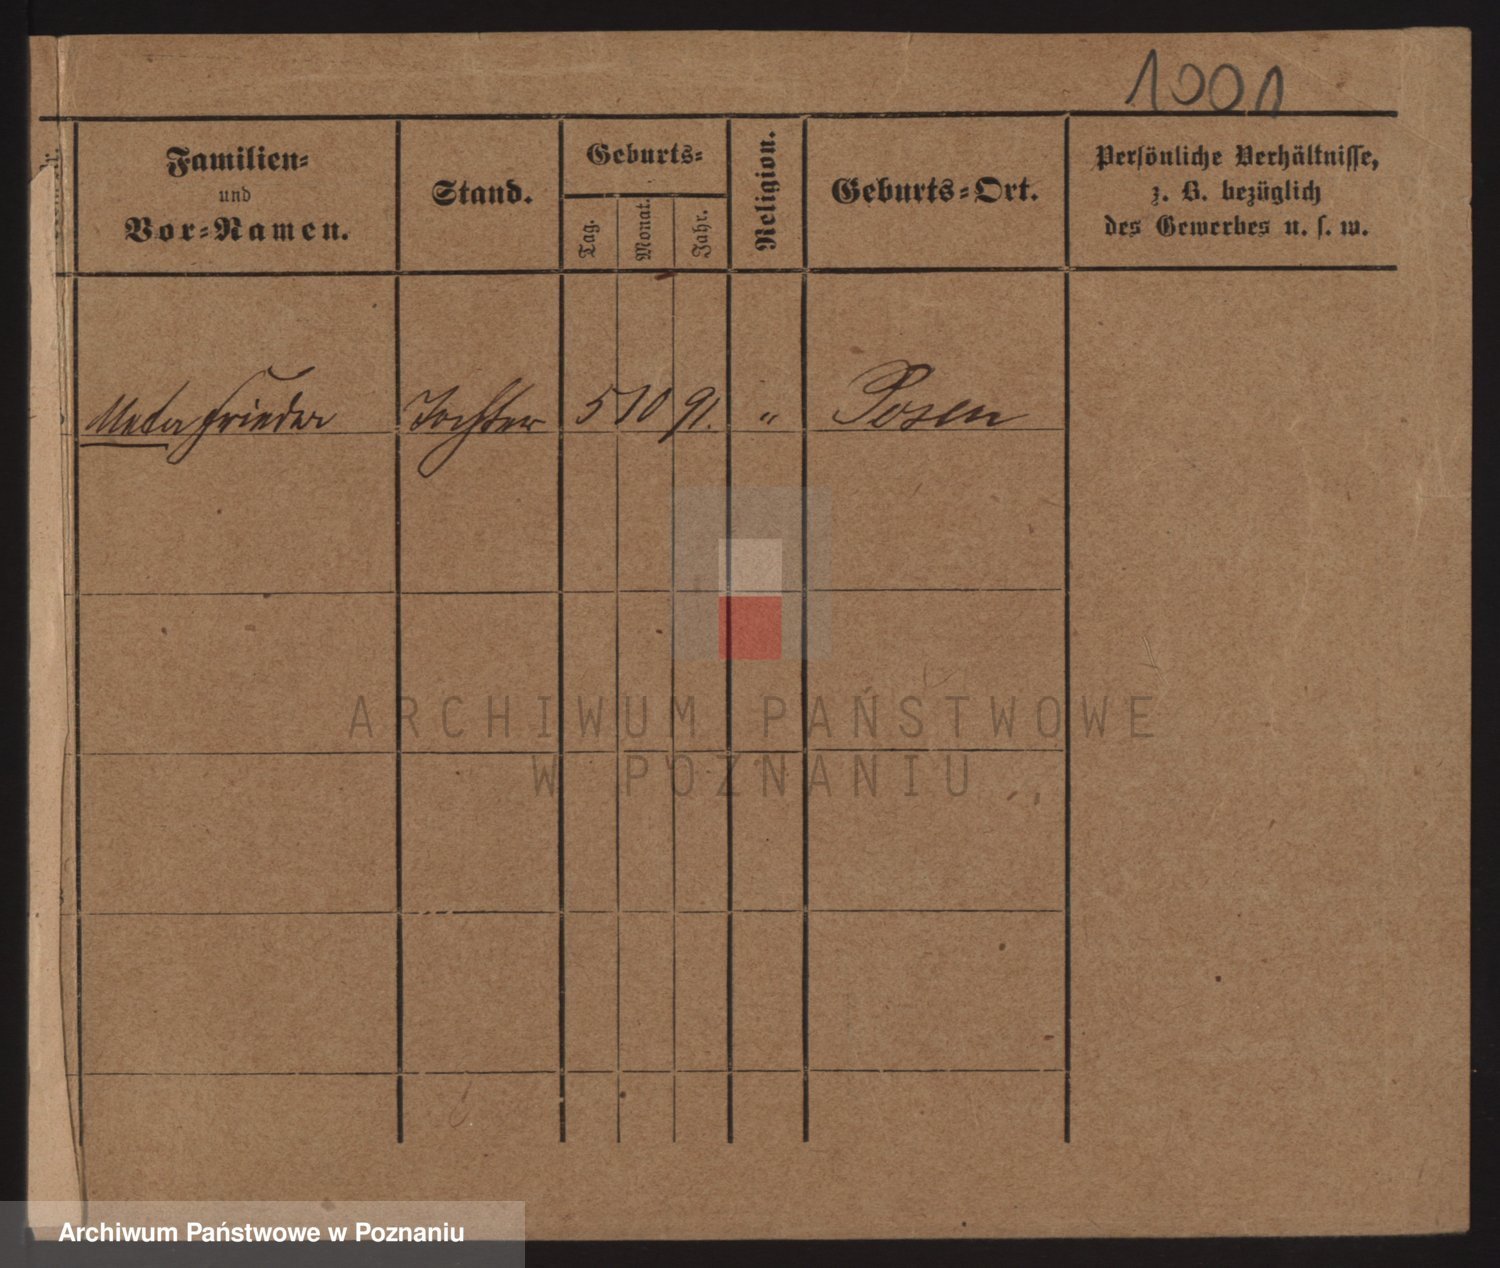 1001
Familien-
und
Vor-Namen.
Stand.
Geburts-
Tag.
Monat.
Jahr.
Religion.
Geburts-Ort.
Persönliche Verhältnisse,
z. B. bezüglich
des Gewerbes u. s. w.
Meta Frieder Tochter 5 10 91. " Posen
ARCHIWUM PAŃSTWOWE
W POZNANIU
Archiwum Państwowe w Poznaniu